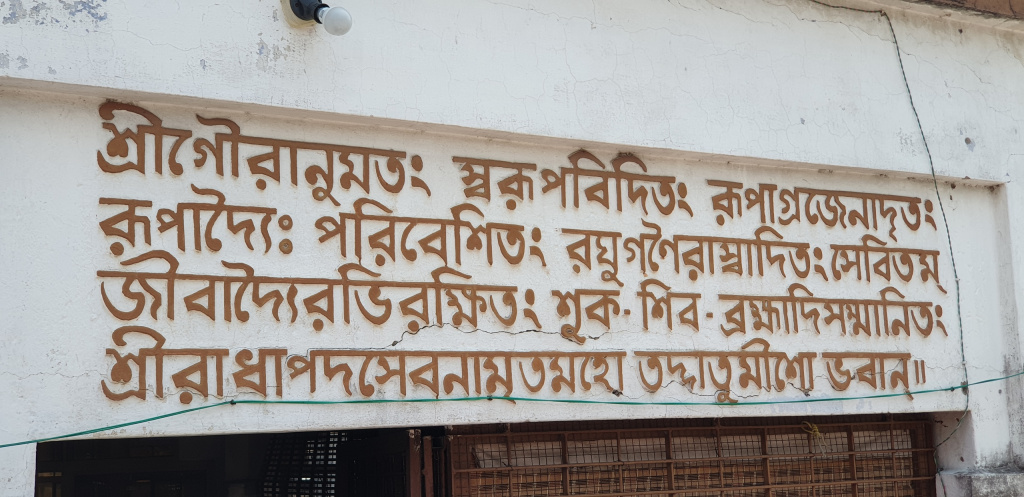 শ্রীগৌরানুমতং স্বরূপবিদিতং রূপাগ্রজেনাদৃতং
রূপাদ্যৈঃ পরিবেশিতং রঘুগণৈরাস্বাদিতং সেবিতম্
জীবাদ্যৈরভিরক্ষিতং শুক-শিব-ব্রহ্মাদিসম্মানিতং
শ্রীরাধাপদসেবনামৃতমহো তদ্দাতুমীশো ভবান্॥